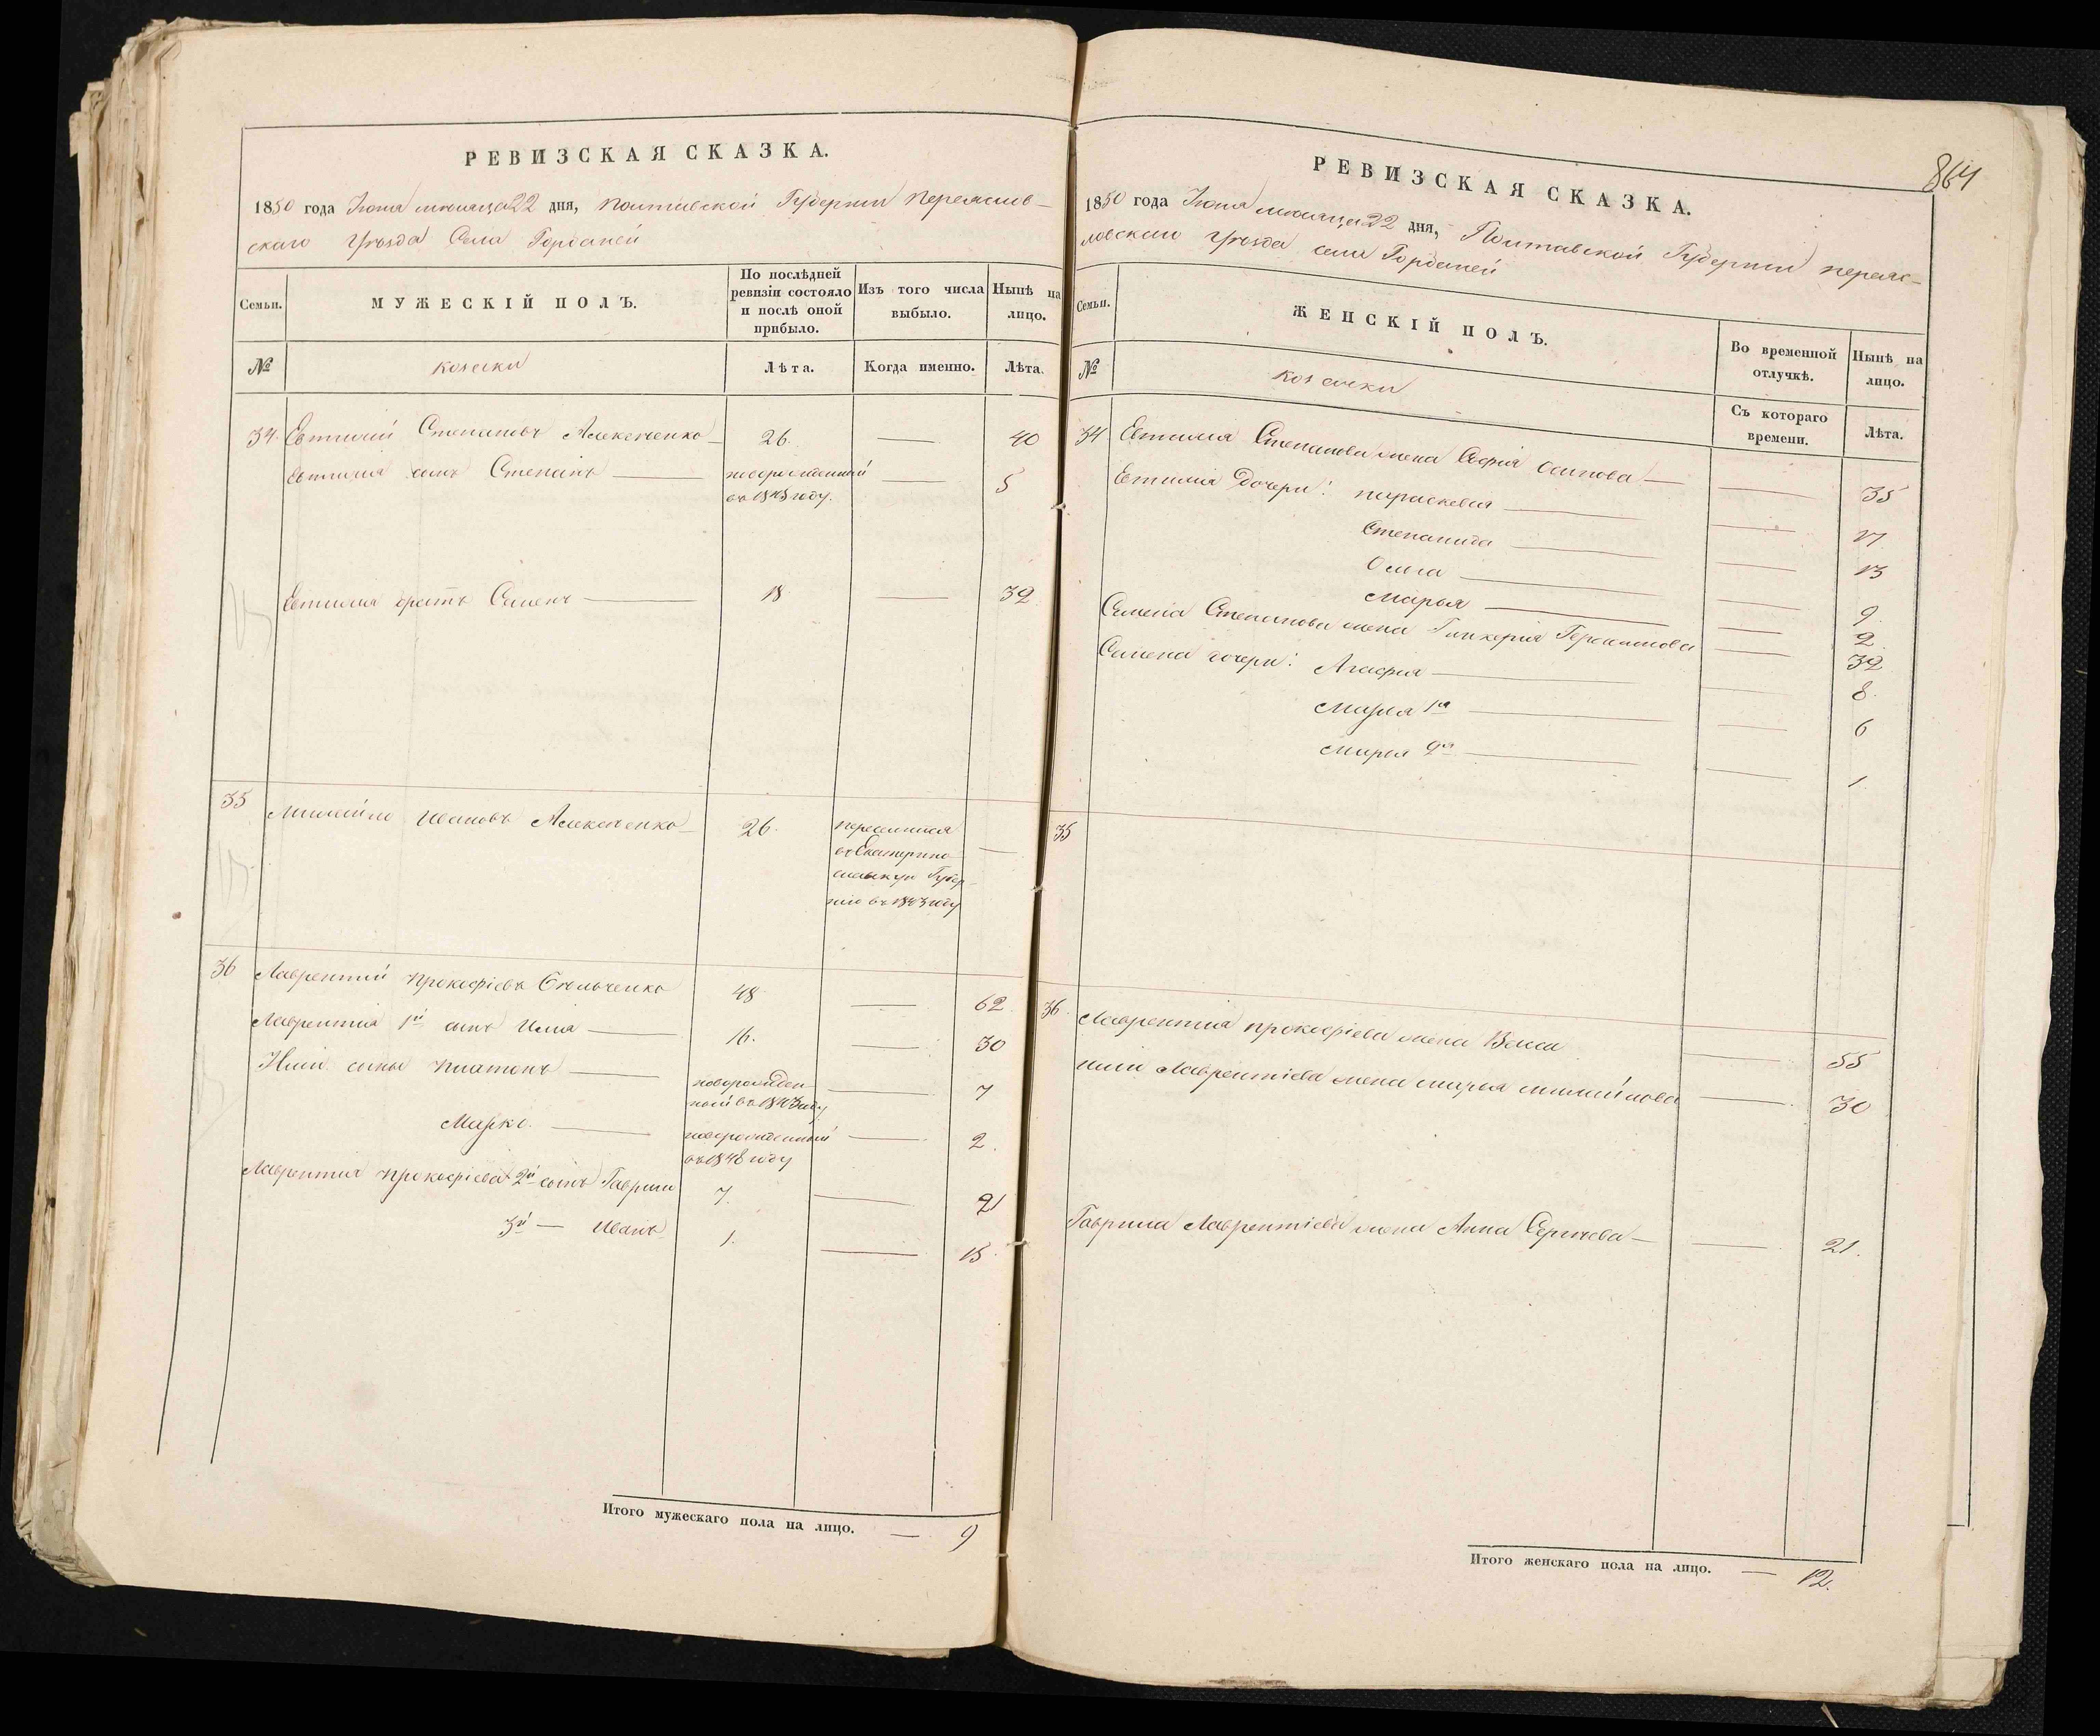 РЕВИЗСКАЯ СКАЗКА.
1850 года Іюня мѣсяца 22 дня, Полтавской Губерніи Переяслов-
скаго Уѣзда Села Горбаней
Семьи.
МУЖЕСКІЙ ПОЛЪ.
По послѣдней ревизіи состояло и послѣ оной прибыло.
Изъ того числа выбыло.
Нынѣ на лицо.
№
козаки
Лѣта.
Когда именно.
Лѣта.
34. Евтихій Степановъ Алексеенко 26. 40
Евтихія сынъ Степанъ новорожденный 5
въ 1845 году.
Евтихія братъ Семенъ 18 32
35 Ивановъ Алексеенко 26. переселился
въ Екатерино
славскую Губер
нію въ 1843 году
36 Лаврентій Прокофіевъ 48 62
Лаврентія 1й сынъ Илія 16. 30
Иліи сыны Платонъ новорожден 7
ный въ 1843 году
Марко. новорожденный 2.
въ 1848 году
Лаврентія Прокофіева 2й сынъ Гаврило 7. 21
3й — Иванъ 1. 15.
Итого мужескаго пола на лицо. — 9
864
РЕВИЗСКАЯ СКАЗКА.
1850 года Іюня мѣсяца 22 дня, Полтавской Губерніи Переяс-
ловскаго Уѣзда села Горбаней
Семьи.
ЖЕНСКІЙ ПОЛЪ.
Во временной отлучкѣ.
Нынѣ на лицо.
№
козачки
Съ котораго времени.
Лѣта.
34 Евтихія Степанова жена Софія Осипова 35
Евтихія Дочери: Параскевія 17.
Степанида 13
Ольга 9.
Марья 2
Семена Степанова жена Гликерія Герасимова 32
Семена дочери: Агафія 8.
Марья 1я 6
Марья 2я 1
35
36. Лаврентія Прокофіева жена Васса 55
Иліи Лаврентіева жена Марья 30
Гаврила Лаврентіева жена Анна Сергѣева 21.
Итого женскаго пола на лицо. — 12.